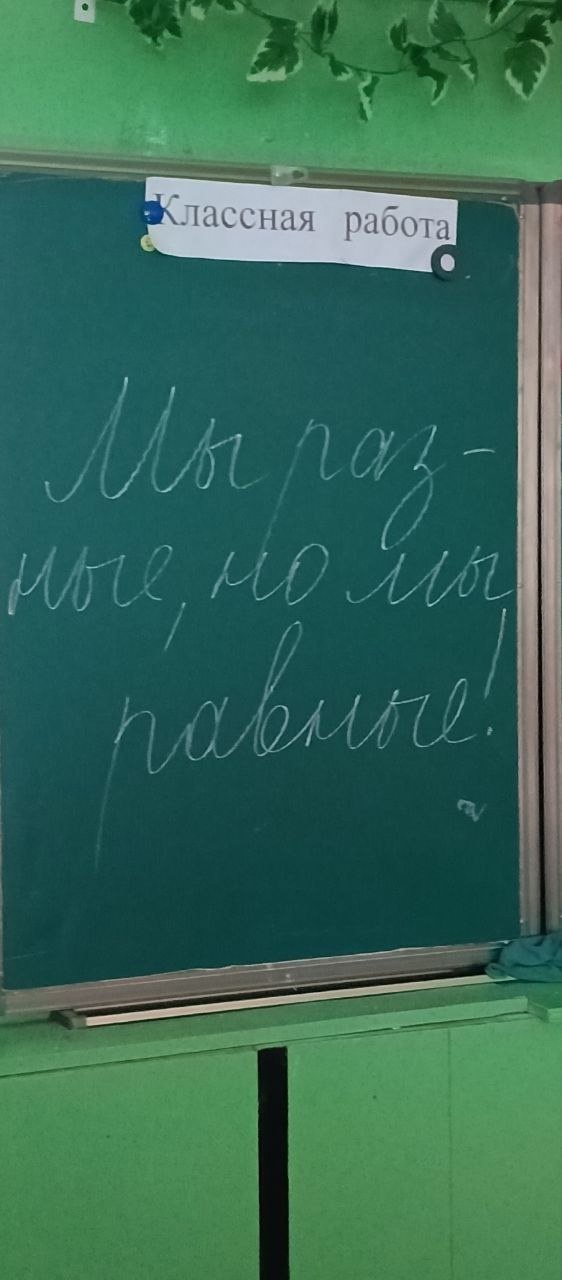 Классная работа
Мы раз-
ные, но мы
равные!